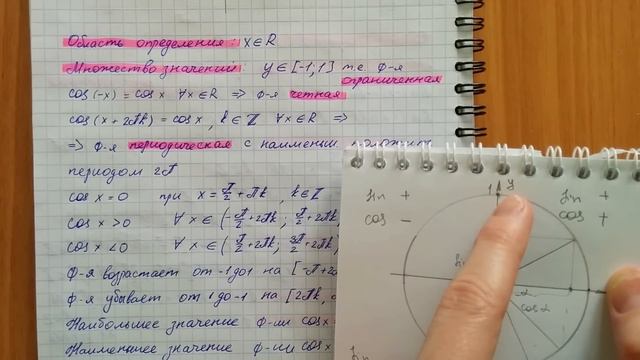 Область определения: x∈R
Множество значений: y∈[-1;1] т.е. ф-я
ограниченная
cos(-x)=cos x ∀x∈R ⇒ ф-я четная
cos(x+2πk)=cos x, k∈Z ∀x∈R ⇒
⇒ ф-я периодическая с наименьш. положит.
периодом 2π
cos x=0 при x=π/2+πk, k∈Z
cos x>0 ∀x∈(-π/2+2πk; π/2+2πk,
cos x<0 ∀x∈(π/2+2πk; 3π/2+2πk,
Ф-я возрастает от -1 до 1 на [-π+2π
Ф-я убывает от 1 до -1 на [2πk,
Наибольшее значение ф-ии cos x=
Наименьшее значение ф-ии cos x
sin + 1 y sin +
cos - cos +
cos α